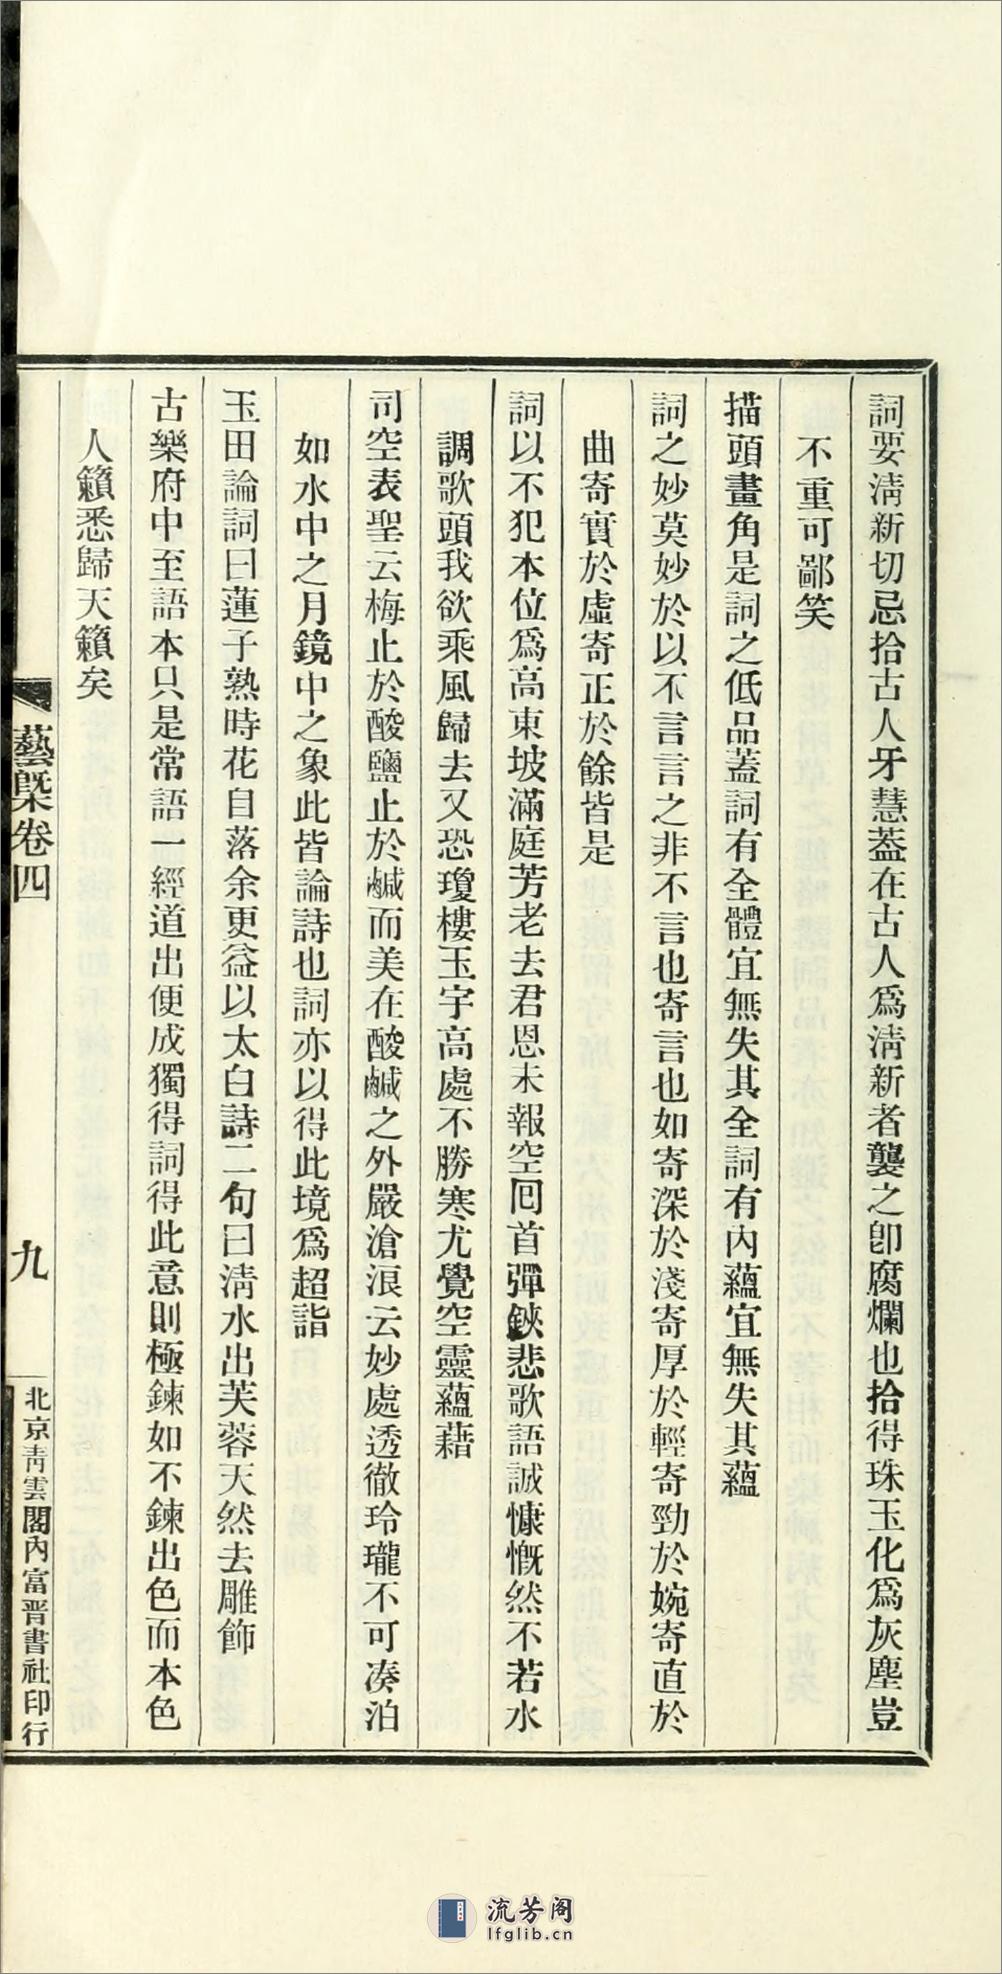 詞要淸新切忌拾古人牙慧葢在古人爲淸新者襲之卽腐爛也拾得珠玉化爲灰塵豈
不重可鄙笑
描頭畫角是詞之低品葢詞有全體宜無失其全詞有內蘊宜無失其蘊
詞之妙莫妙於以不言言之非不言也寄言也如寄深於淺寄厚於輕寄勁於婉寄直於
曲寄實於虛寄正於餘皆是
詞以不犯本位爲高東坡滿庭芳老去君恩未報空囘首彈鋏悲歌語誠慷慨然不若水
調歌頭我欲乘風歸去又恐瓊樓玉宇高處不勝寒尤覺空靈蘊藉
司空表聖云梅止於酸鹽止於鹹而美在酸鹹之外嚴滄浪云妙處透徹玲瓏不可湊泊
如水中之月鏡中之象此皆論詩也詞亦以得此境爲超詣
玉田論詞曰蓮子熟時花自落余更益以太白詩二句曰淸水出芙蓉天然去雕飾
古樂府中至語本只是常語一經道出便成獨得詞得此意則極鍊如不鍊出色而本色
人籟悉歸天籟矣
藝槩卷四
九
北京靑雲閣內富晉書社印行
流芳阁
lfglib.cn